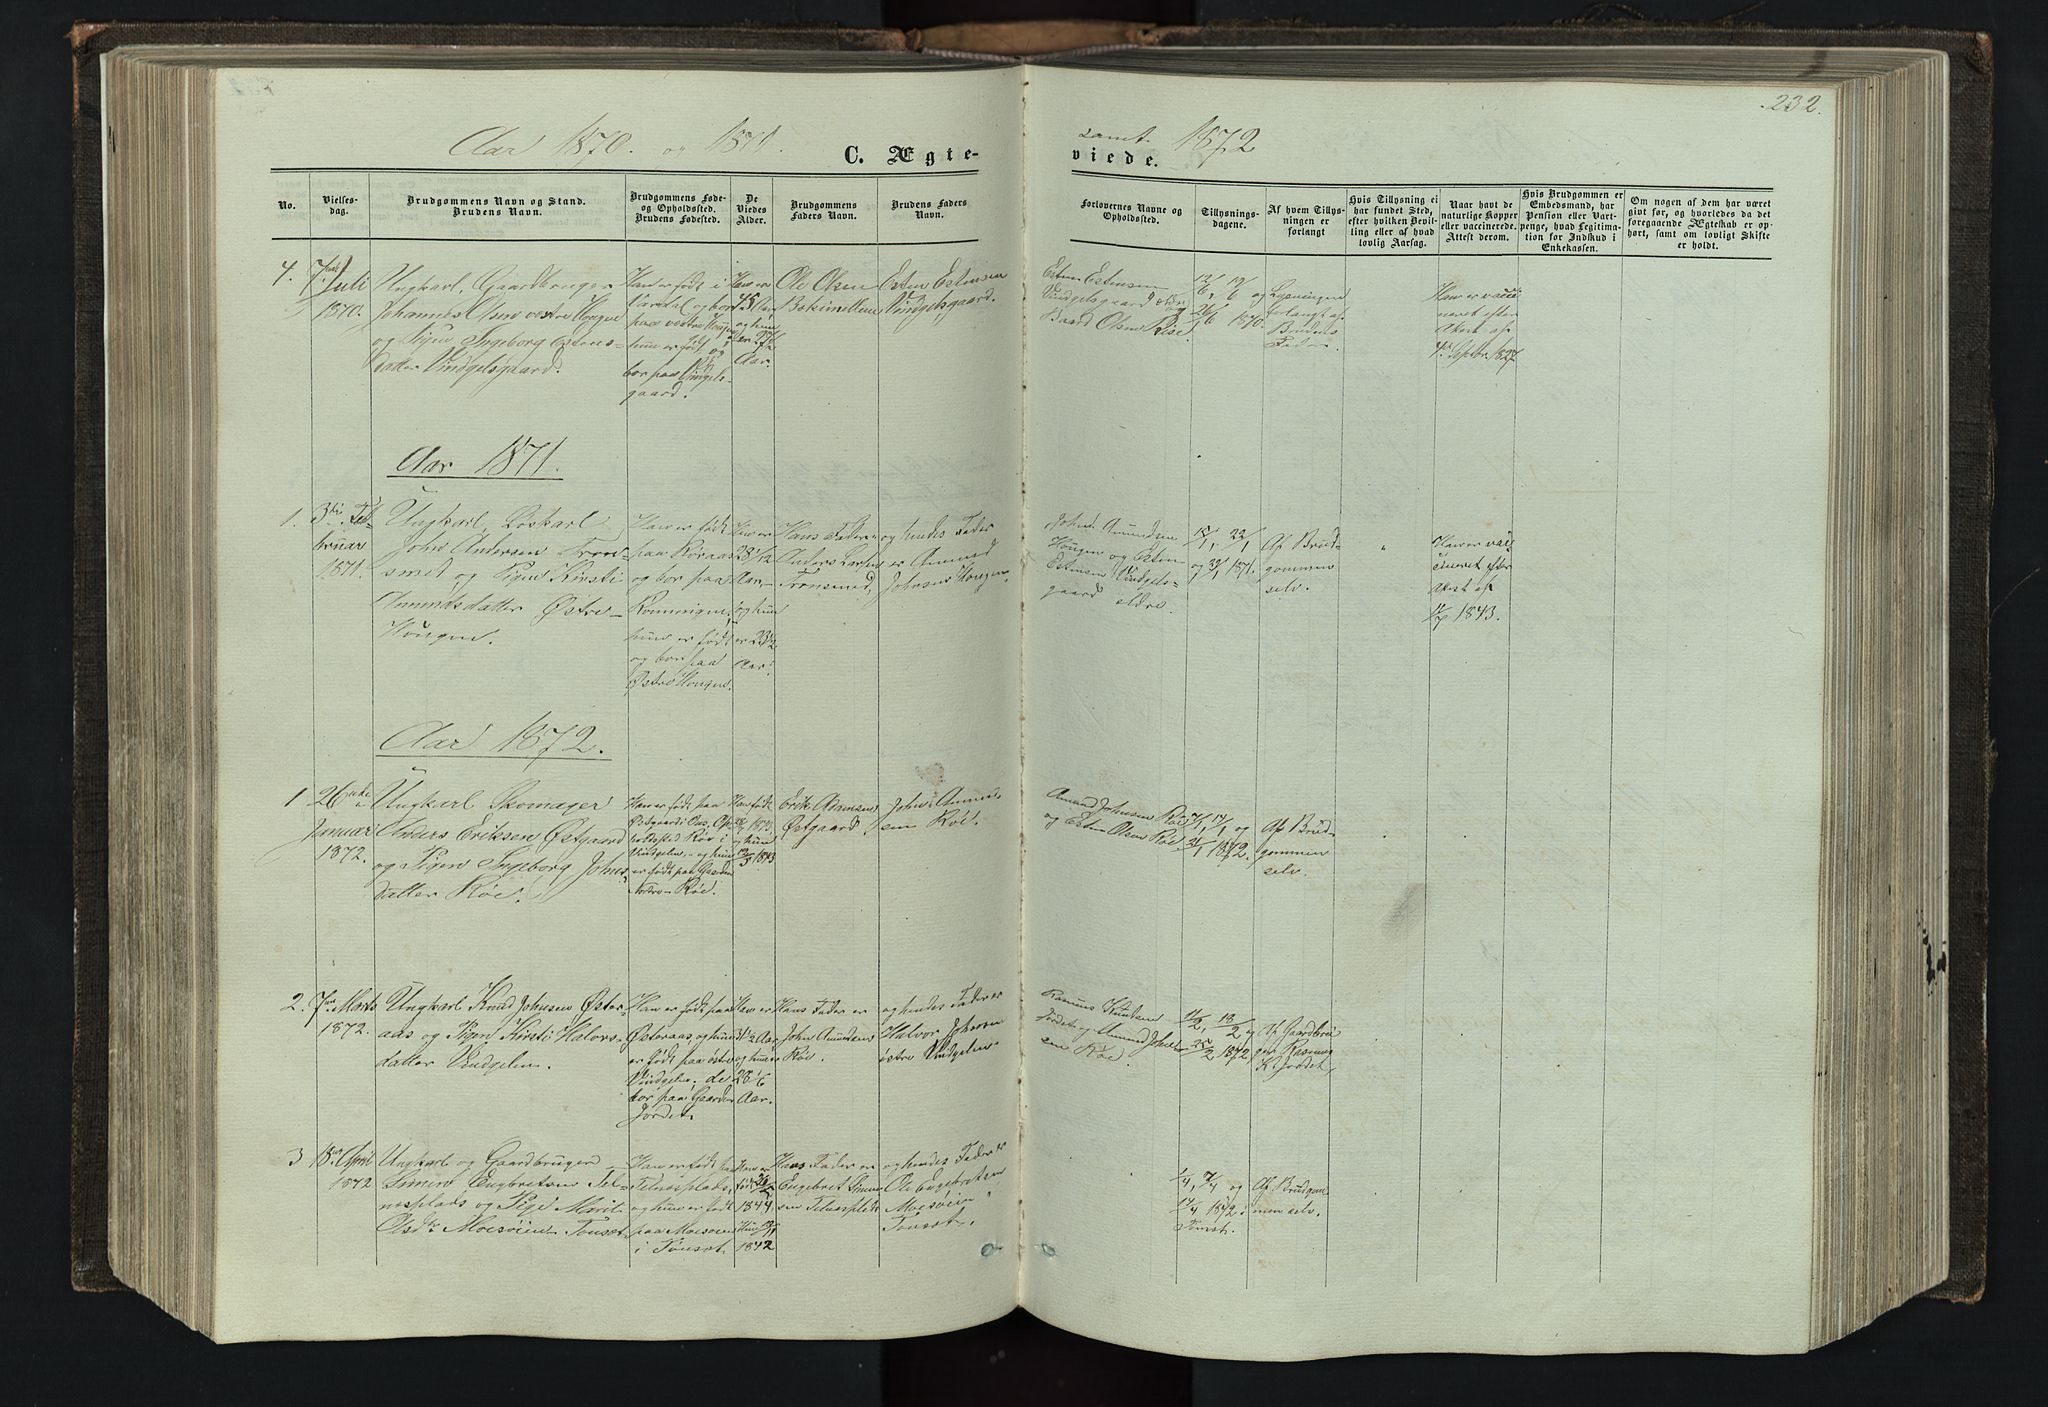 232.
Aar 1870. og 1871.
samt 1872
C. Ægte-
viede.
No.
Vielses-
dag.
Brudgommens Navn og Stand.
Brudens Navn.
Brudgommens Føde-
og Opholdssted.
Brudens Fødested.
De
Viedes
Alder.
Brudgommens
Faders Navn.
Brudens Faders
Navn.
Forlovernes Navne og
Opholdssted.
Tillysnings-
dagene.
Af hvem Tillys-
ningen er
forlangt
Hvis Tillysning ei
har fundet Sted,
efter hvilken Bevil-
ling eller af hvad
lovlig Aarsag.
Naar havt de
naturlige Kopper
eller vaccinerede.
Attest derom.
Hvis Brudgommen er
Embedsmand, har
Pension eller Vart-
penge, hvad Legitima-
tion for Indskud i
Enkekassen.
Om nogen af dem har været
givt før, og hvorledes da det
foregaaende Ægteskab er op-
hørt, samt om lovligt Skifte
er holdt.
4.
Juli
1870.
Ungkarl, Gaardbruger
Johannes Olsen vestre Hougen
og Pigen Ingeborg Estens-
datter Vindgelsgaard.
Han er født i
og bor
paa vestre Hougen
hun er født og
bor paa Vingels-
gaard.
Han er
45 Aar
og hun
Aar.
Ole Olsen
Esten Estensen
Vindgelsgaard.
Esten Estensen
Vindgelsgaard ældre og
Baard Olsen Røse.
12/6, 19/6 og
26/6 1870.
Lysningen
forlangt af
Brudens
Fader.
Han er vacci
neret efter
Attest af
Septbr. 1827
Aar 1871.
1.
3die Feb-
bruar
1871.
Ungkarl,
John Andersen Tron-
smed og Pigen Kirsti
Amundsdatter Østre-
Hougen.
Han er født
paa Røraas
og bor paa
hun er født
og bor paa
Østre Hougen.
Han er
Aar
og hun
er 23
Aar.
Hans Fader
Anders Larsen
Tronsmed,
og hendes Fader
er Amund
Johnsen Hougen,
John Amundsen
Hougen og Esten
Estensen Vindgels-
gaard ældre.
15/1, 22/1
og 29/1 1871.
Af Brud-
gommen
selv.
Han er vac-
cineret efter
Attest af
1843.
Aar 1872.
1
26de
Januar
1872.
Ungkarl Skomager
Anders Eriksen Østgaard
og Pigen Ingeborg Johns-
datter Røe.
Han er født paa
Østgaard i Os, Op-
holdssted Røe i
Vindgelen, og hun
er født paa Gaarden
Nordre Røe.
Han født
og hun
1843
Erik
Østgaard,
John Amund-
sen Røe.
Amund Johnsen Røe
og Esten Olsen Røe
7/1, 14/1 og
21/1 1872.
Af Brud-
gommen
selv.
2.
7de Marts
1872.
Ungkarl Knud Johnsen Øster-
aas og Pigen Kirsti Halvors-
datter Vindgelen.
Han er født paa
Østeraas og hun
er født paa østre
Vindgelen, de
bor paa Gaarden
Jordet.
Han er
31½ Aar
og hun
Aar.
Hans Fader er
John Amundsen
Røe.
og hendes Fader er
Halvor Johnsen
østre Vindgelen.
Rasmus Knudsen
Jordet og Amund John-
sen Røe
11/2, 18/2 og
25/2 1872
Af Gaardbru-
ger Rasmus
K. Jordet,
3
18de April
1872
Ungkarl og Gaardbruger
Simen Engbretsen Tel-
nesplads og Pige Marit
Olsdr. Moesøien Tønset.
Han er født paa
Telnesplads,
og hun er født
paa Moesøien
i Tønset.
Han er
født
1844,
Hun
1842
Hans Fader er
Engebret Simen-
sen Telnesplads
og hendes Fader er
Ole Engebretsen
Moesøien
Tønset.
1/4, 7/4 og
14/4 1872 i
Tønset.
Af Brudgom-
men selv.